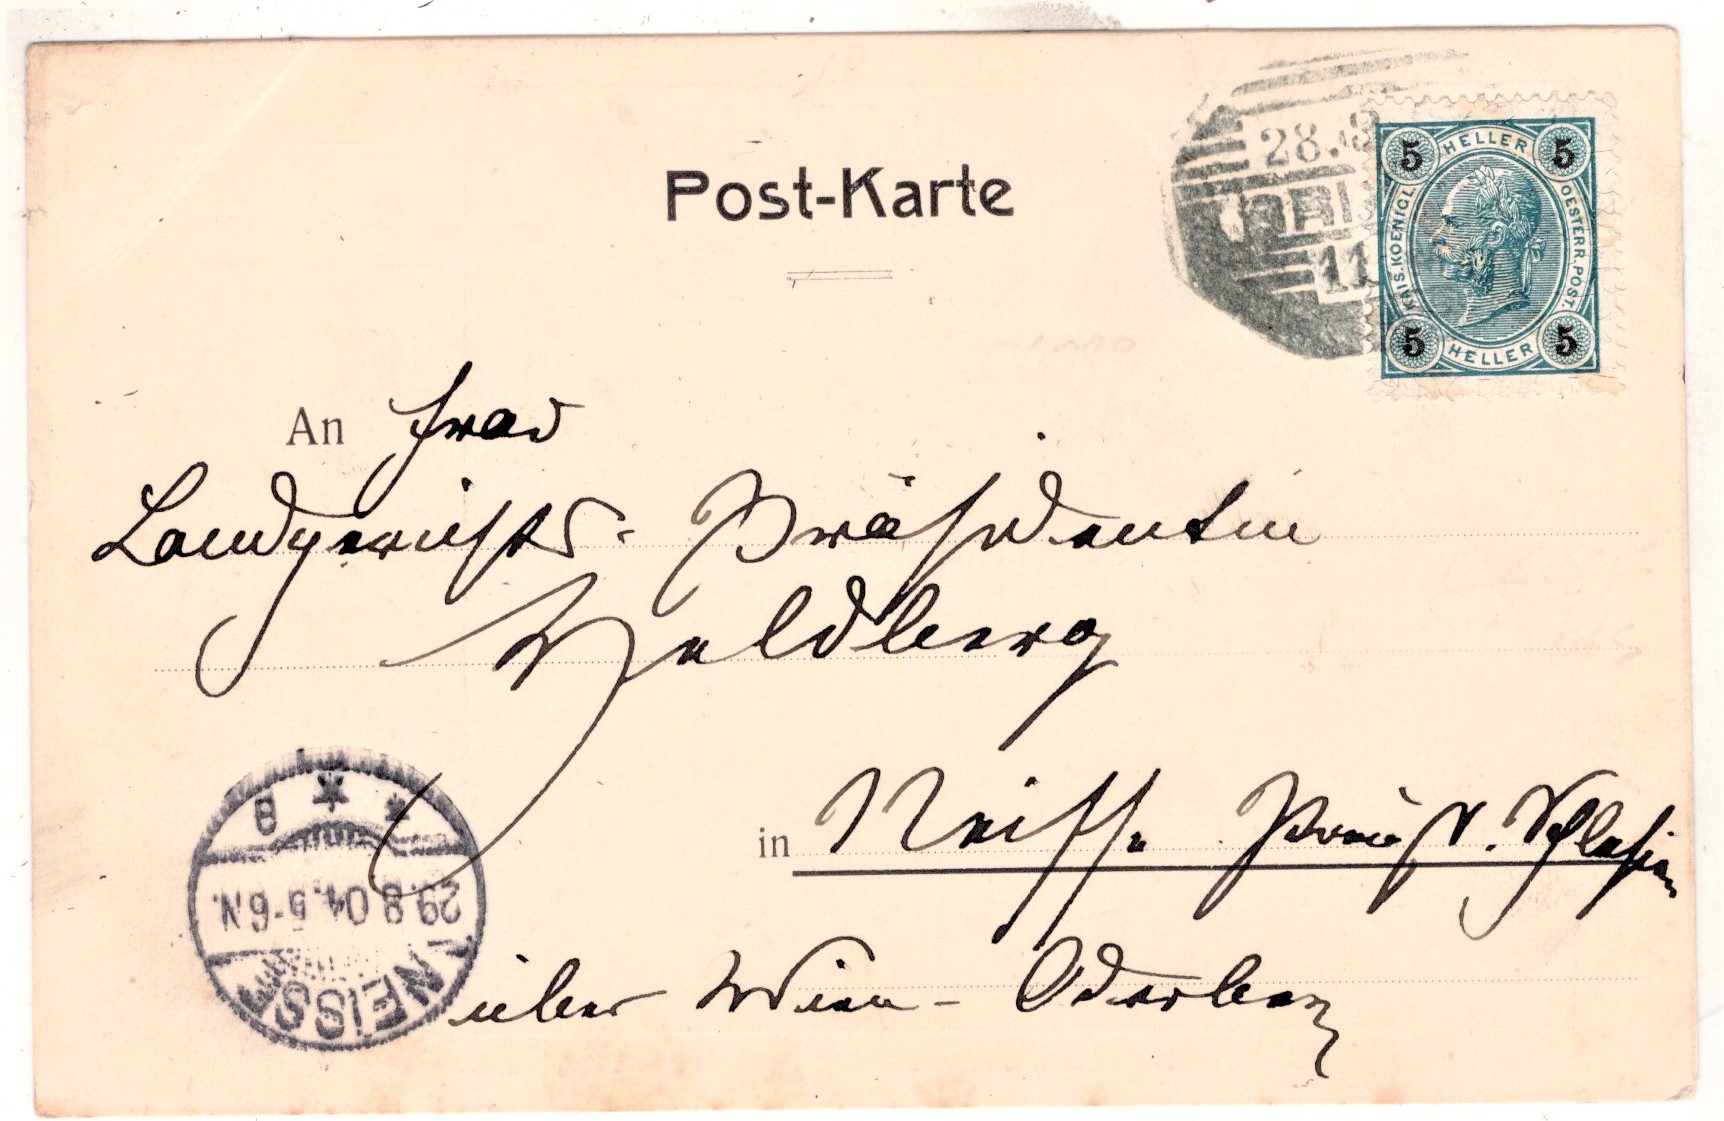 Post-Karte
28.
5 HELLER 5
KAIS. KOENIGL. OESTERR. POST.
5 HELLER 5
11
An Frau
Landgerichts-Präsidentin
Heldberg
in Neisse Preuß. Schlesien
über Wien - Oderberg
NEISSE
29.8.04.5-6N.